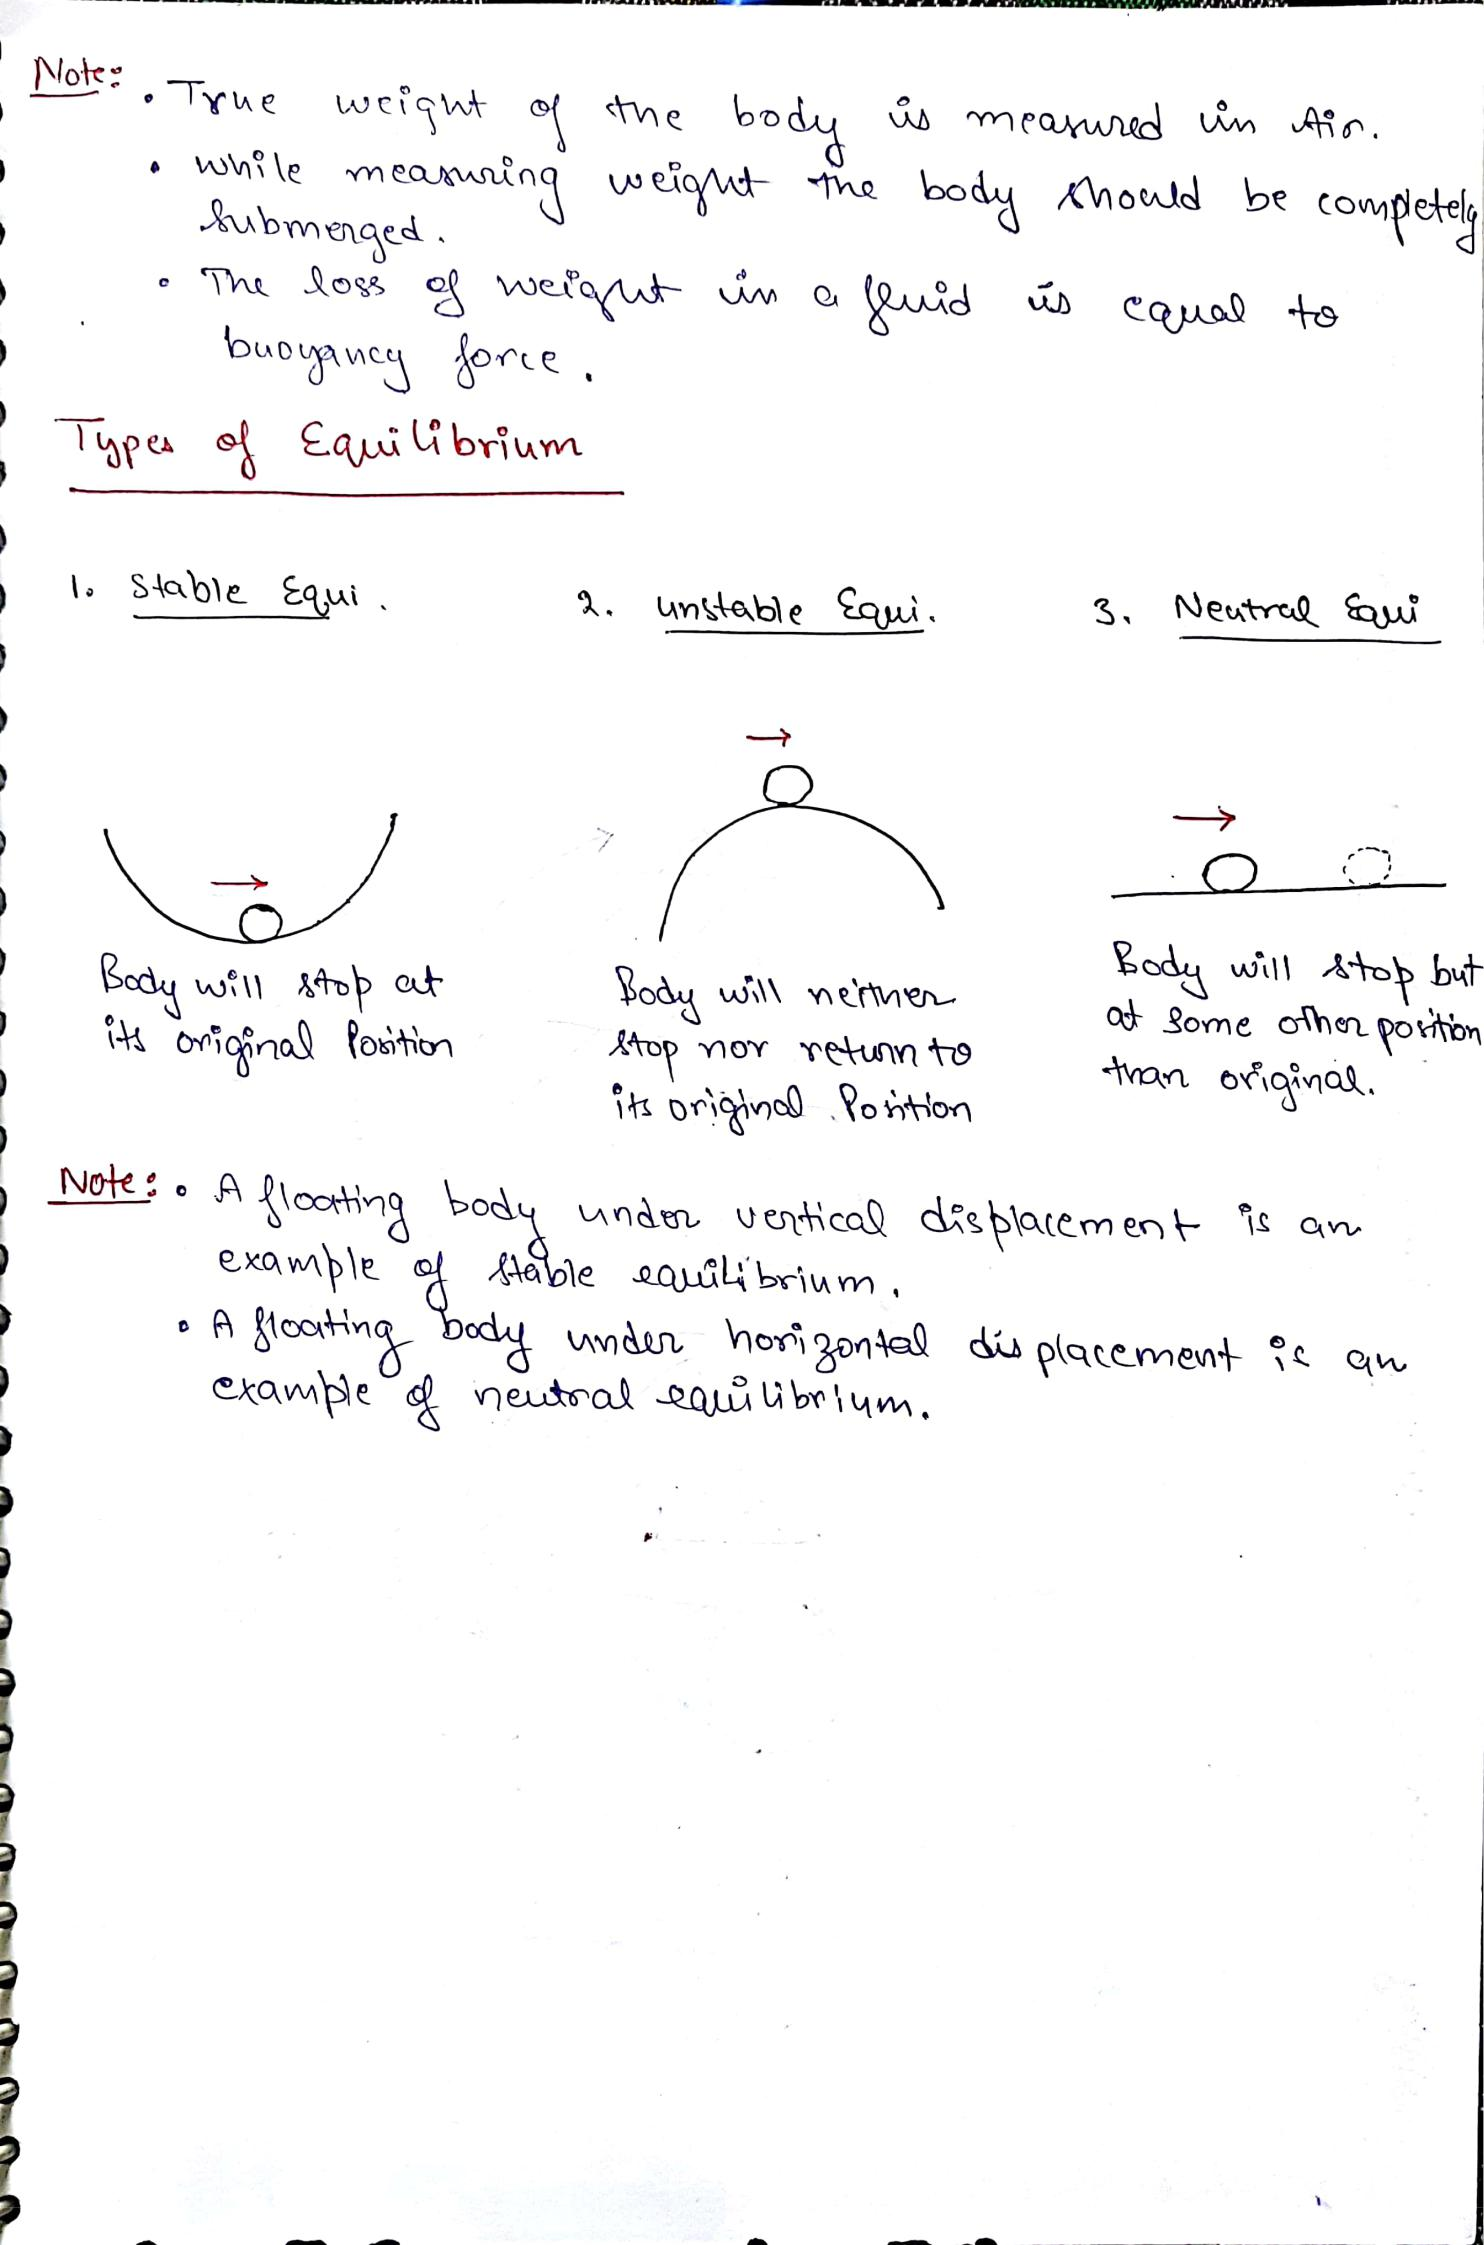 Note:
• True weight of the body is measured in Air.
• while measuring weight the body should be completely
submerged.
• The loss of weight in a fluid is equal to
buoyancy force.
Types of Equilibrium
1. Stable Equi.
2. unstable Equi.
3. Neutral Equi
Body will stop at
its original Position
Body will neither
stop nor return to
its original Position
Body will stop but
at some other position
than original.
Note: • A floating body under vertical displacement is an
example of stable equilibrium.
• A floating body under horizontal displacement is an
example of neutral equilibrium.